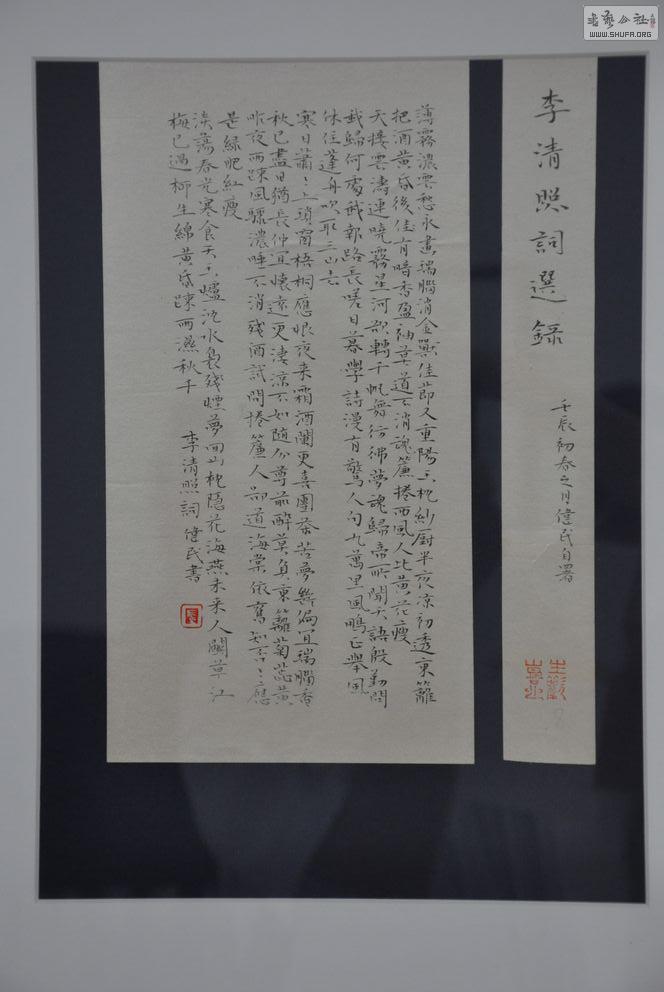 書藝公社
WWW.SHUFA.ORG
李清照詞選錄
壬辰初春之月健民自署
薄霧濃雲愁永晝瑞腦消金獸佳節又重陽玉枕紗厨半夜涼初透東籬
把酒黃昏後佳有暗香盈袖莫道不消魂簾捲西風人比黃花瘦
天接雲濤連曉霧星河欲轉千帆舞彷彿夢魂歸帝所聞天語殷勤問
我歸何處我報路長嗟日暮學詩漫有驚人句九萬里風鵬正舉風
休住蓬舟吹取三山去
寒日蕭〻上瑣窗梧桐應恨夜来霜酒闌更喜團茶苦夢斷偏宜瑞腦香
秋已盡日猶長仲宣懷遠更淒涼不如隨分尊前醉莫負東籬菊蕊黃
昨夜雨疎風驟濃睡不消殘酒試問捲簾人卻道海棠依舊知否〻〻應
是綠肥紅瘦
淡蕩春光寒食天玉爐沈水裊殘煙夢回山枕隱花海燕未来人鬭草江
梅已過柳生綿黃昏疎雨濕秋千 李清照詞 健民書